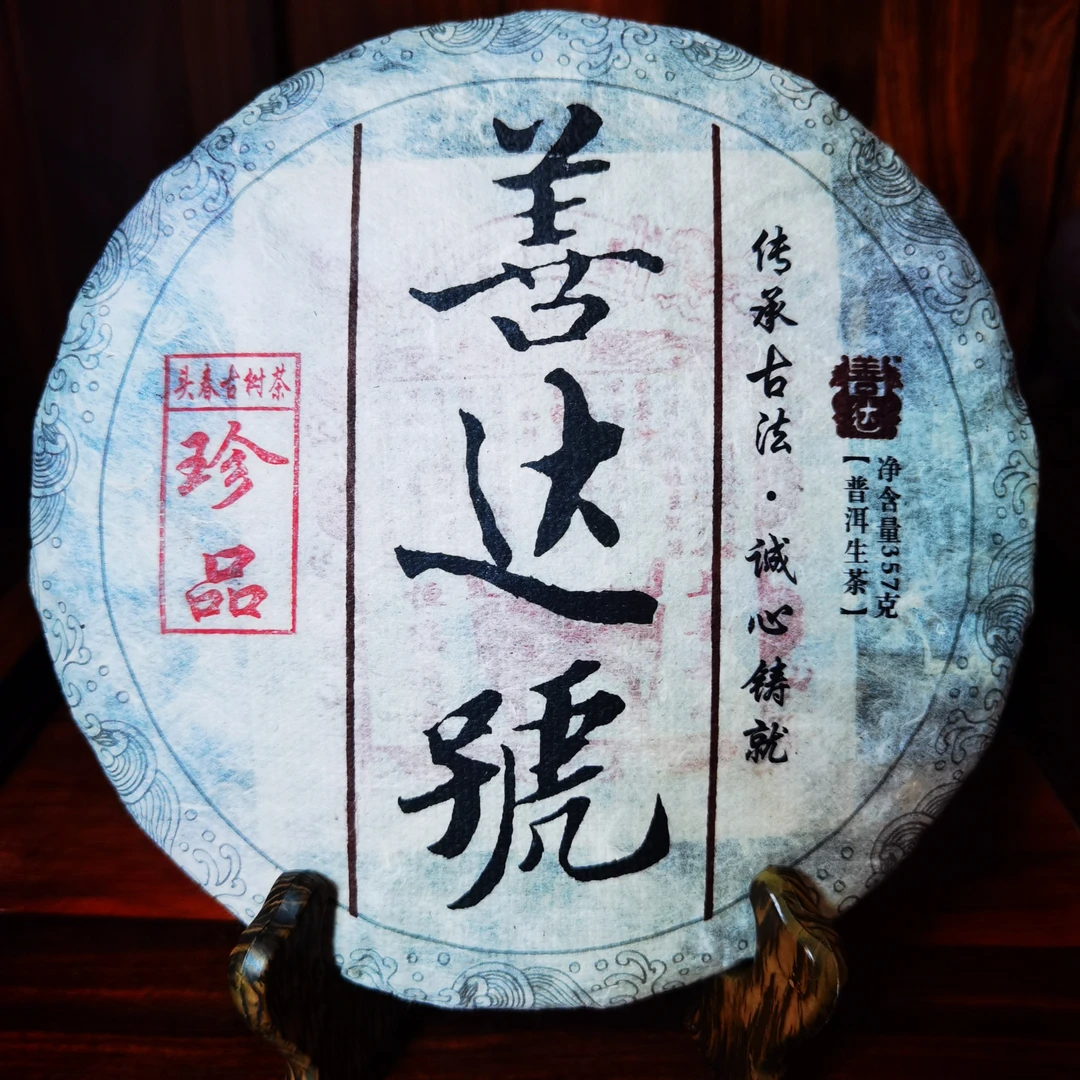 善达
净含量357克
【普洱生茶】
传承古法·诚心铸就
善达號
头春古树茶
珍品